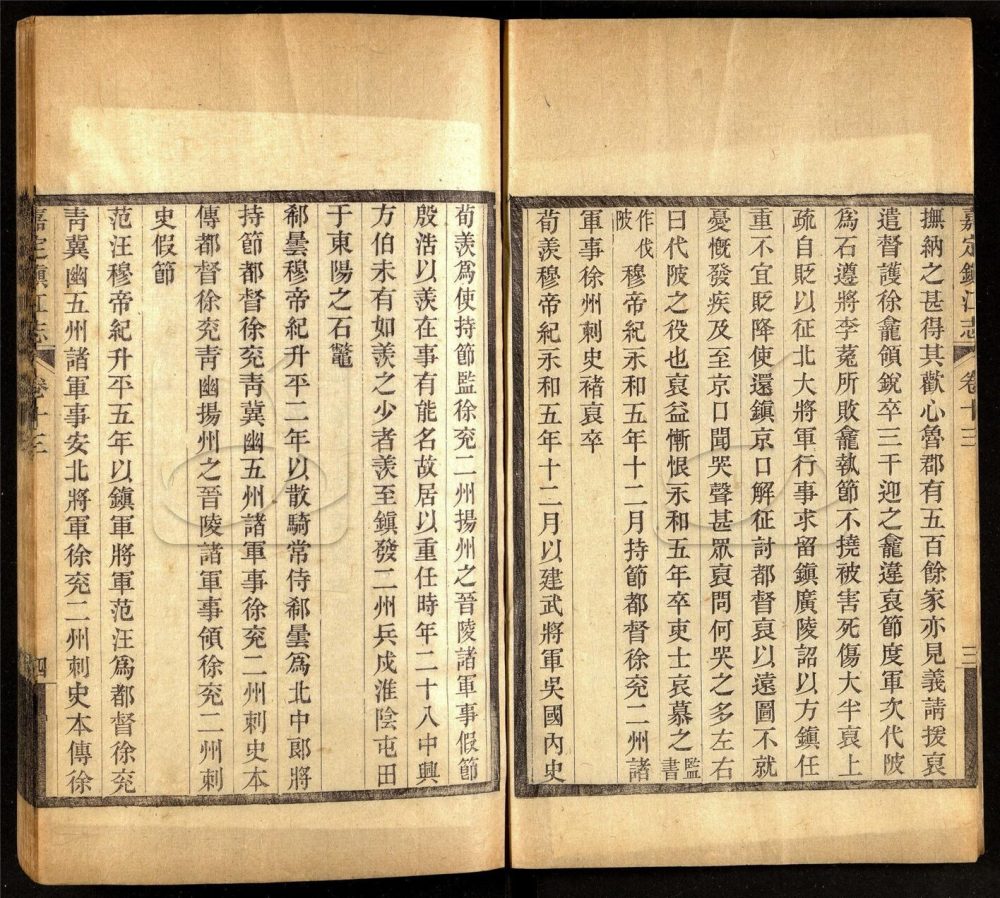 嘉定鎮江志 卷十三 三
撫納之甚得其歡心魯郡有五百餘家亦見義請援裒
遣督護徐龕領銳卒三千迎之龕違裒節度軍次代陂
為石遵將李菟所敗龕執節不撓被害死傷大半裒上
疏自貶以征北大將軍行事求留鎮廣陵詔以方鎮任
重不宜貶降使還鎮京口解征討都督裒以遠圖不就
憂慨發疾及至京口聞哭聲甚眾裒問何哭之多左右
曰代陂之役也裒益慚恨永和五年卒吏士哀慕之監書
作伐陂穆帝紀永和五年十二月持節都督徐兗二州諸
軍事徐州刺史褚裒卒
荀羨穆帝紀永和五年十二月以建武將軍吳國內史
荀羨為使持節監徐兗二州揚州之晉陵諸軍事假節
殷浩以羨在事有能名故居以重任時年二十八中興
方伯未有如羨之少者羨至鎮發二州兵戍淮陰屯田
于東陽之石鼈
郗曇穆帝紀升平二年以散騎常侍郗曇為北中郎將
持節都督徐兗青冀幽五州諸軍事徐兗二州刺史本
傳都督徐兗青幽揚州之晉陵諸軍事領徐兗二州刺
史假節
范汪穆帝紀升平五年以鎮軍將軍范汪為都督徐兗
青冀幽五州諸軍事安北將軍徐兗二州刺史本傳徐
嘉定鎮江志 卷十三 四